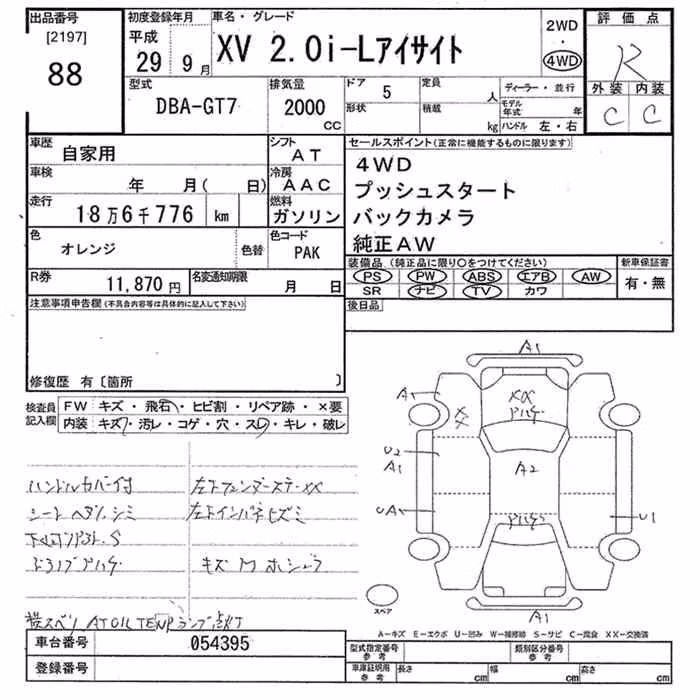 出品番号
[2197]
88
初度登録年月
平成
29 9月
車名・グレード
XV 2.0i-Lアイサイト
2WD
・
4WD
評価点
R
外装 内装
C C
型式
DBA-GT7
排気量
2000
CC
ドア
5
形状
定員
人
積載
kg
ディーラー・並行
モデル年式 年
ハンドル 左・右
車歴
自家用
シフト
AT
車検
年 月( 日)
冷房
AAC
走行
18万6千776 km
燃料
ガソリン
色
オレンジ
色替
色コード
PAK
R券
11,870 円
名変通知期限
月 日
セールスポイント(正常に機能するものに限ります)
4WD
プッシュスタート
バックカメラ
純正AW
装備品(純正品に限り○をつけてください)
PS PW ABS エアB AW
SR ナビ TV カワ
新車保証書
有・無
注意事項申告欄(不具合内容等は具体的に記入して下さい)
後日品
修復歴 有〔箇所 〕
検査員記入欄
FW キズ・飛石・ヒビ割・リペア跡・×要
内装 キズ・汚レ・コゲ・穴・スレ・キレ・破レ
ハンドルカバー付
シート ヘタリ シミ
キズ M ホジョラ
AT OIL TEMP ランプ点灯
A1
A
XX
XX
U2
A1
A2
UA
U1
A1
スペア
A-キズ E-エクボ U-凹み W-補修跡 S-サビ C-腐食 XX-交換済
車台番号
054395
登録番号
型式指定番号
参考
類別区分番号
参考
車庫証明用
参考
長さ cm
幅 cm
高さ cm